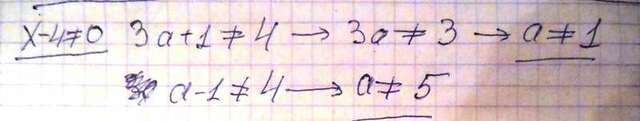 x-4≠0 3a+1≠4 → 3a≠3 → a≠1
a-1≠4 → a≠5